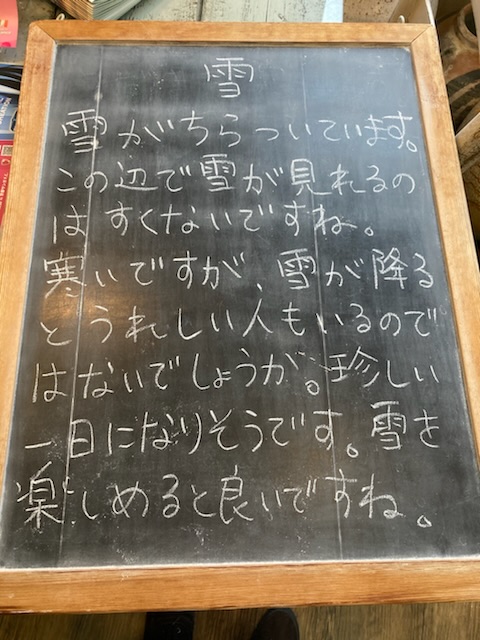 雪
雪がちらついています。
この辺で雪が見れるの
はすくないですね。
寒いですが、雪が降る
とうれしい人もいるので
はないでしょうか。珍しい
一日になりそうです。雪を
楽しめると良いですね。